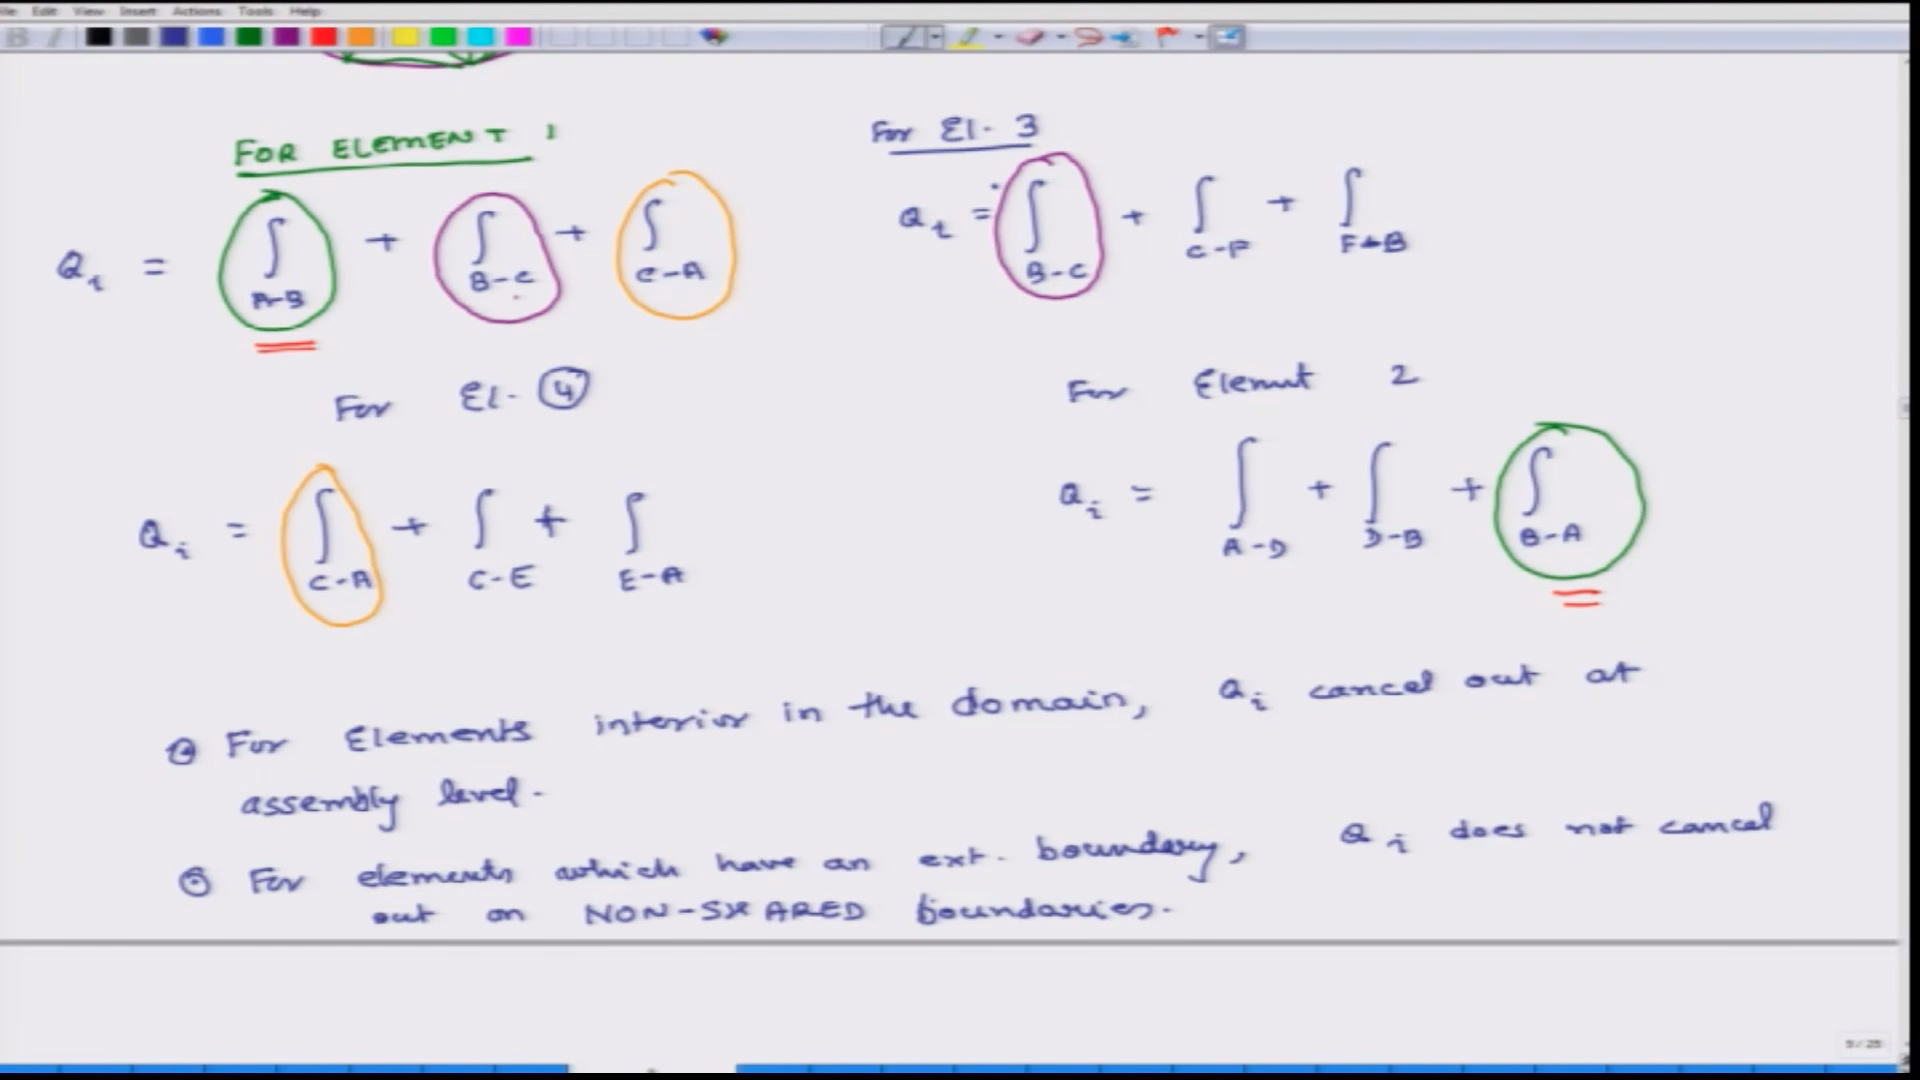 File Edit View Insert Actions Tools Help
FOR ELEMENT 1
Qi = ∫ A-B + ∫ B-C + ∫ C-A
For El. 3
Qi = ∫ B-C + ∫ C-F + ∫ F-B
For El. 4
Qi = ∫ C-A + ∫ C-E + ∫ E-A
For Element 2
Qi = ∫ A-D + ∫ D-B + ∫ B-A
For Elements interior in the domain, Qi cancel out at
assembly level.
For elements which have an ext. boundary, Qi does not cancel
out on NON-SHARED boundaries.
9 / 25